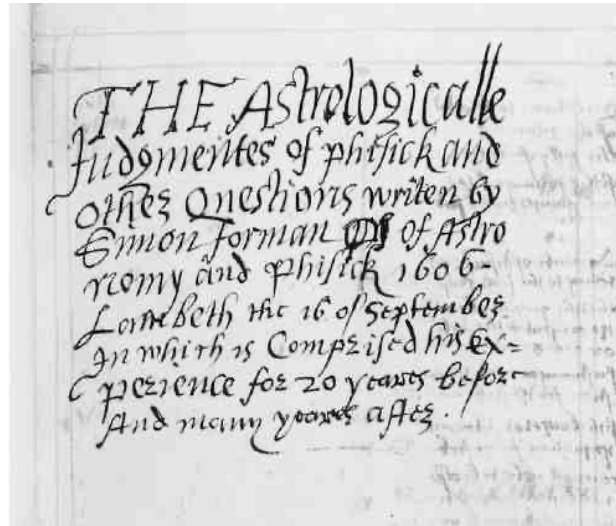 THE Astrologicalle
Judgmentes of phisick and
other Questions writen by
Simon Forman of Astro
nomy and Phisick 1606-
Lambeth the 16 of September.
In which is Comprised his Ex=
perience for 20 yeares before
And many yeares after.